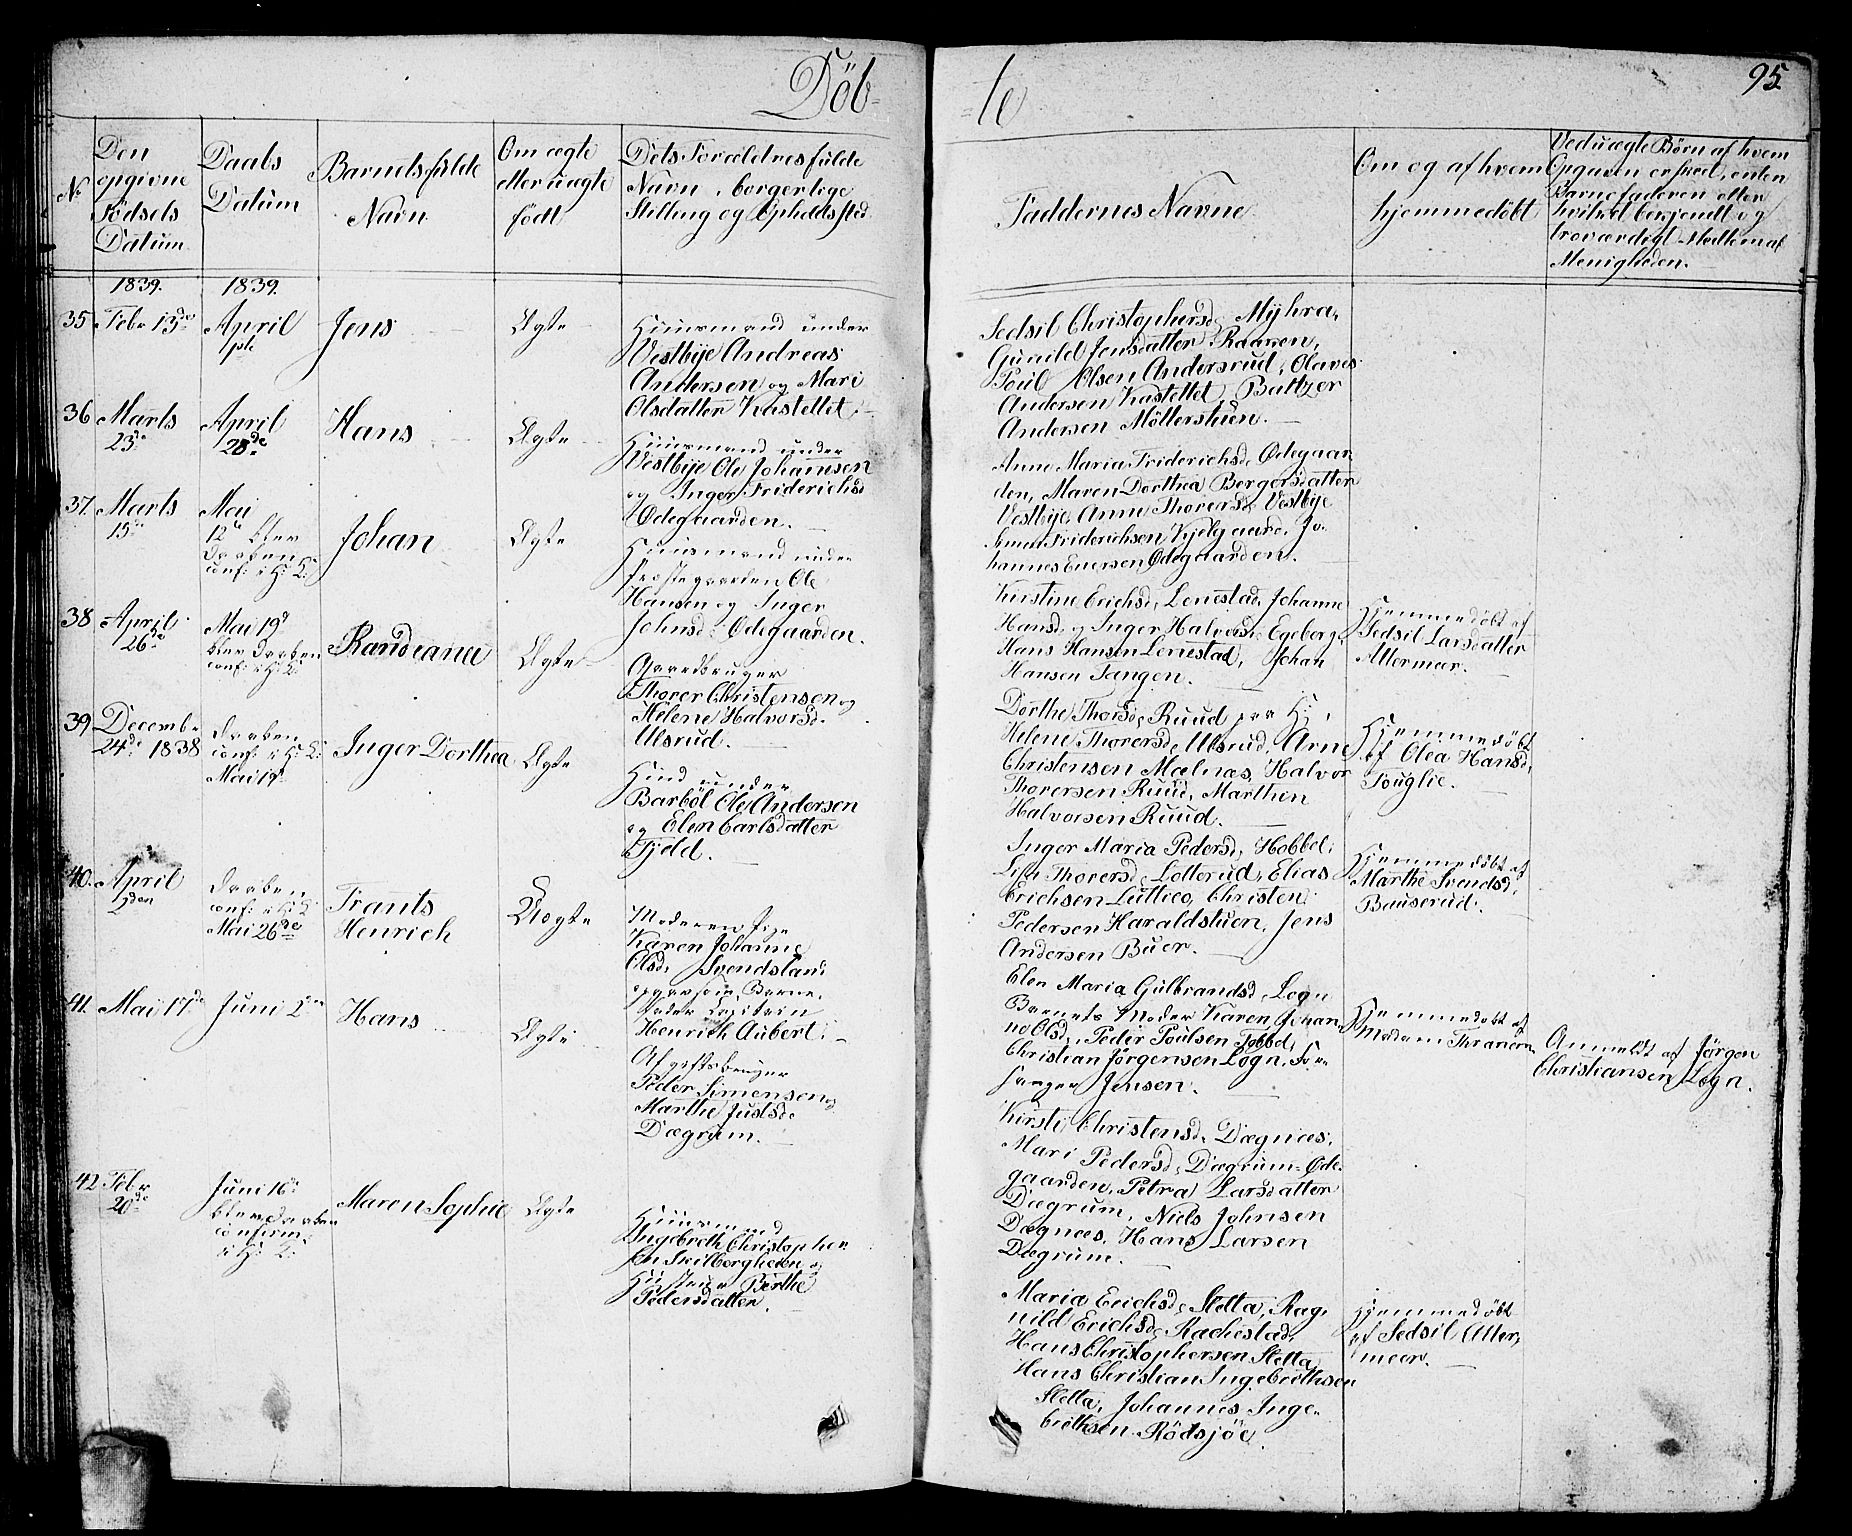 Döb-
-te
95.
No
Den
opgivne
Födsels
Datum
Daabs
Datum
Barnets fulde
Navn
Om ægte
eller uægte
födt
Dets Forældres fulde
Navn, borgerlige
Stilling og Opholdssted
Faddernes Navne
Om og af hvem
hjemmedöbt
Ved uægte Børn af hvem
Opgaven er skeed, enten
Barnefaderen eller
hvilket bekjendt og
troværdigt Medlem af
Menigheden.
1839.
1839.
35
Febr 13de
April
1ste
Jens
Ægte
Huusmand under
Vestbye Andreas
Andersen og Mari
Olsdatter Kastellet.
Sedsil Christophersd, Myhra,
Gunild Jensdatter Raaen,
Poul Olsen Andersrud, Olaves
Andersen Kastellet, Baltzer
Andersen Möllerstuen.
36
Marts
23de
April
28de
Hans
Ægte
Huusmand under
Vestbye Ole Johannsen
og Inger Friderichsd
Ødegaarden.
Anne Maria Friderichsd, Ødegaar
den, Maren Dorthea Borgersdatter
Vestbye, Anne Thorersd, Vestbye
Friderichsen Kjelgaard, Jo-
hannes Enersen Ødegaarden.
37.
Marts
15de
Mai
12te blev
Daaben
conf: i H: K:
Johan
Ægte
Huusmand under
Præstegaarden Ole
Hansen og Inger
Johnsd: Ødegaarden.
Kirstine Erichsd, Lenestad, Johanne
Hansd, og Inger Halvorsd, Egeberg,
Hans Hansen Lenestad, Johan
Hansen Tangen.
Hjemmedöbt af
Sedsil Larsdatter
Attermær.
38
April
26de
Mai 19de
blev Daaben
conf: i H: K:
Randeanne
Ægte
Gaardbruger
Thorer Christensen og
Helene Halvorsd.
Ulsrud.
Dorthe Thorsd, Ruud paa H:,
Helene Thorersd, Ulsrud, Arne
Christensen Mælnæs, Halvor
Thorersen Ruud, Marthin
Halvorsen Ruud.
Hjemmedöbt
af Olea Hansd,
Fouglie.
39
Decembr
24de 1838
Daaben
conf: i H: K:
Mai 19de
Inger Dorthea
Ægte
Hmd under
Barböl Ole Andersen
og Elen Carlsdatter
Fjeld.
Inger Maria Pedersd, Hobbel,
Lisa Thorersd, Lotterud, Elias
Erichsen Luttico, Christen
Pedersen Haraldstuen, Jens
Andersen Buer.
Hjemmedöbt af
Marthe Svendsd,
Bauserud.
40.
April
2den
Daaben
conf: i H: K:
Mai 26de
Frants
Henrich
Uægte
Moderen Pige
Karen Johanne
Olsd, Svendsland
opgav som Barne-
fader Capitain
Henrich Aubert.
Elen Maria Gulbrandsd, Logn
Barnets Moder Karen Johan-
ne Olsd, Peder Poulsen Tobbel,
Christian Jörgensen Logn, For-
sanger Jensen.
Hjemmedöbt af
Madam Thranom
Anmeldt af Jörgen
Christiansen Logn.
41.
Mai 17de
Juni 2den
Hans
Ægte
Afgiftsbruger
Peder Simensen og
Marthe Justsd.
Dægrum.
Kirsti Christensd, Dægnæs,
Mari Pedersd, Dægrum-Øde-
gaarden, Petra Larsdatter
Dægrum, Niels Johnsen
Dægnæs, Hans Larsen
Dægrum.
42
Febr
20de
Juni 16de
blev Daaben
confirm:
i H: K:
Maren Sophie
Ægte
Huusmand
Ingebreth Christopher-
sen Skilborgheden og
Hustrue Berthe
Pedersdatter.
Maria Erichsd, Sletta, Rag-
nild Erichsd, Rachestad,
Hans Christophersen Sletta,
Hans Christian Ingebrethsen
Sletta, Johannes Inge-
brethsen Rödsjöe.
Hjemmedöbt
af Sedsil Atter-
meer.